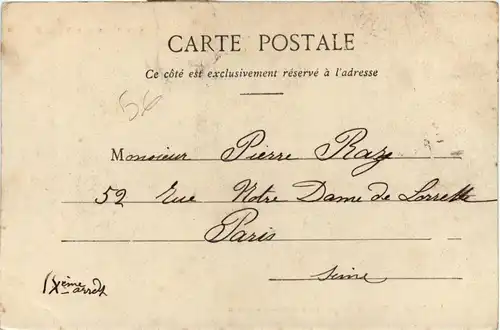 CARTE POSTALE
Ce côté est exclusivement réservé à l'adresse
56
Monsieur Pierre Razy
52 Rue Notre Dame de Lorrette
Paris
Seine
IXème arrdt